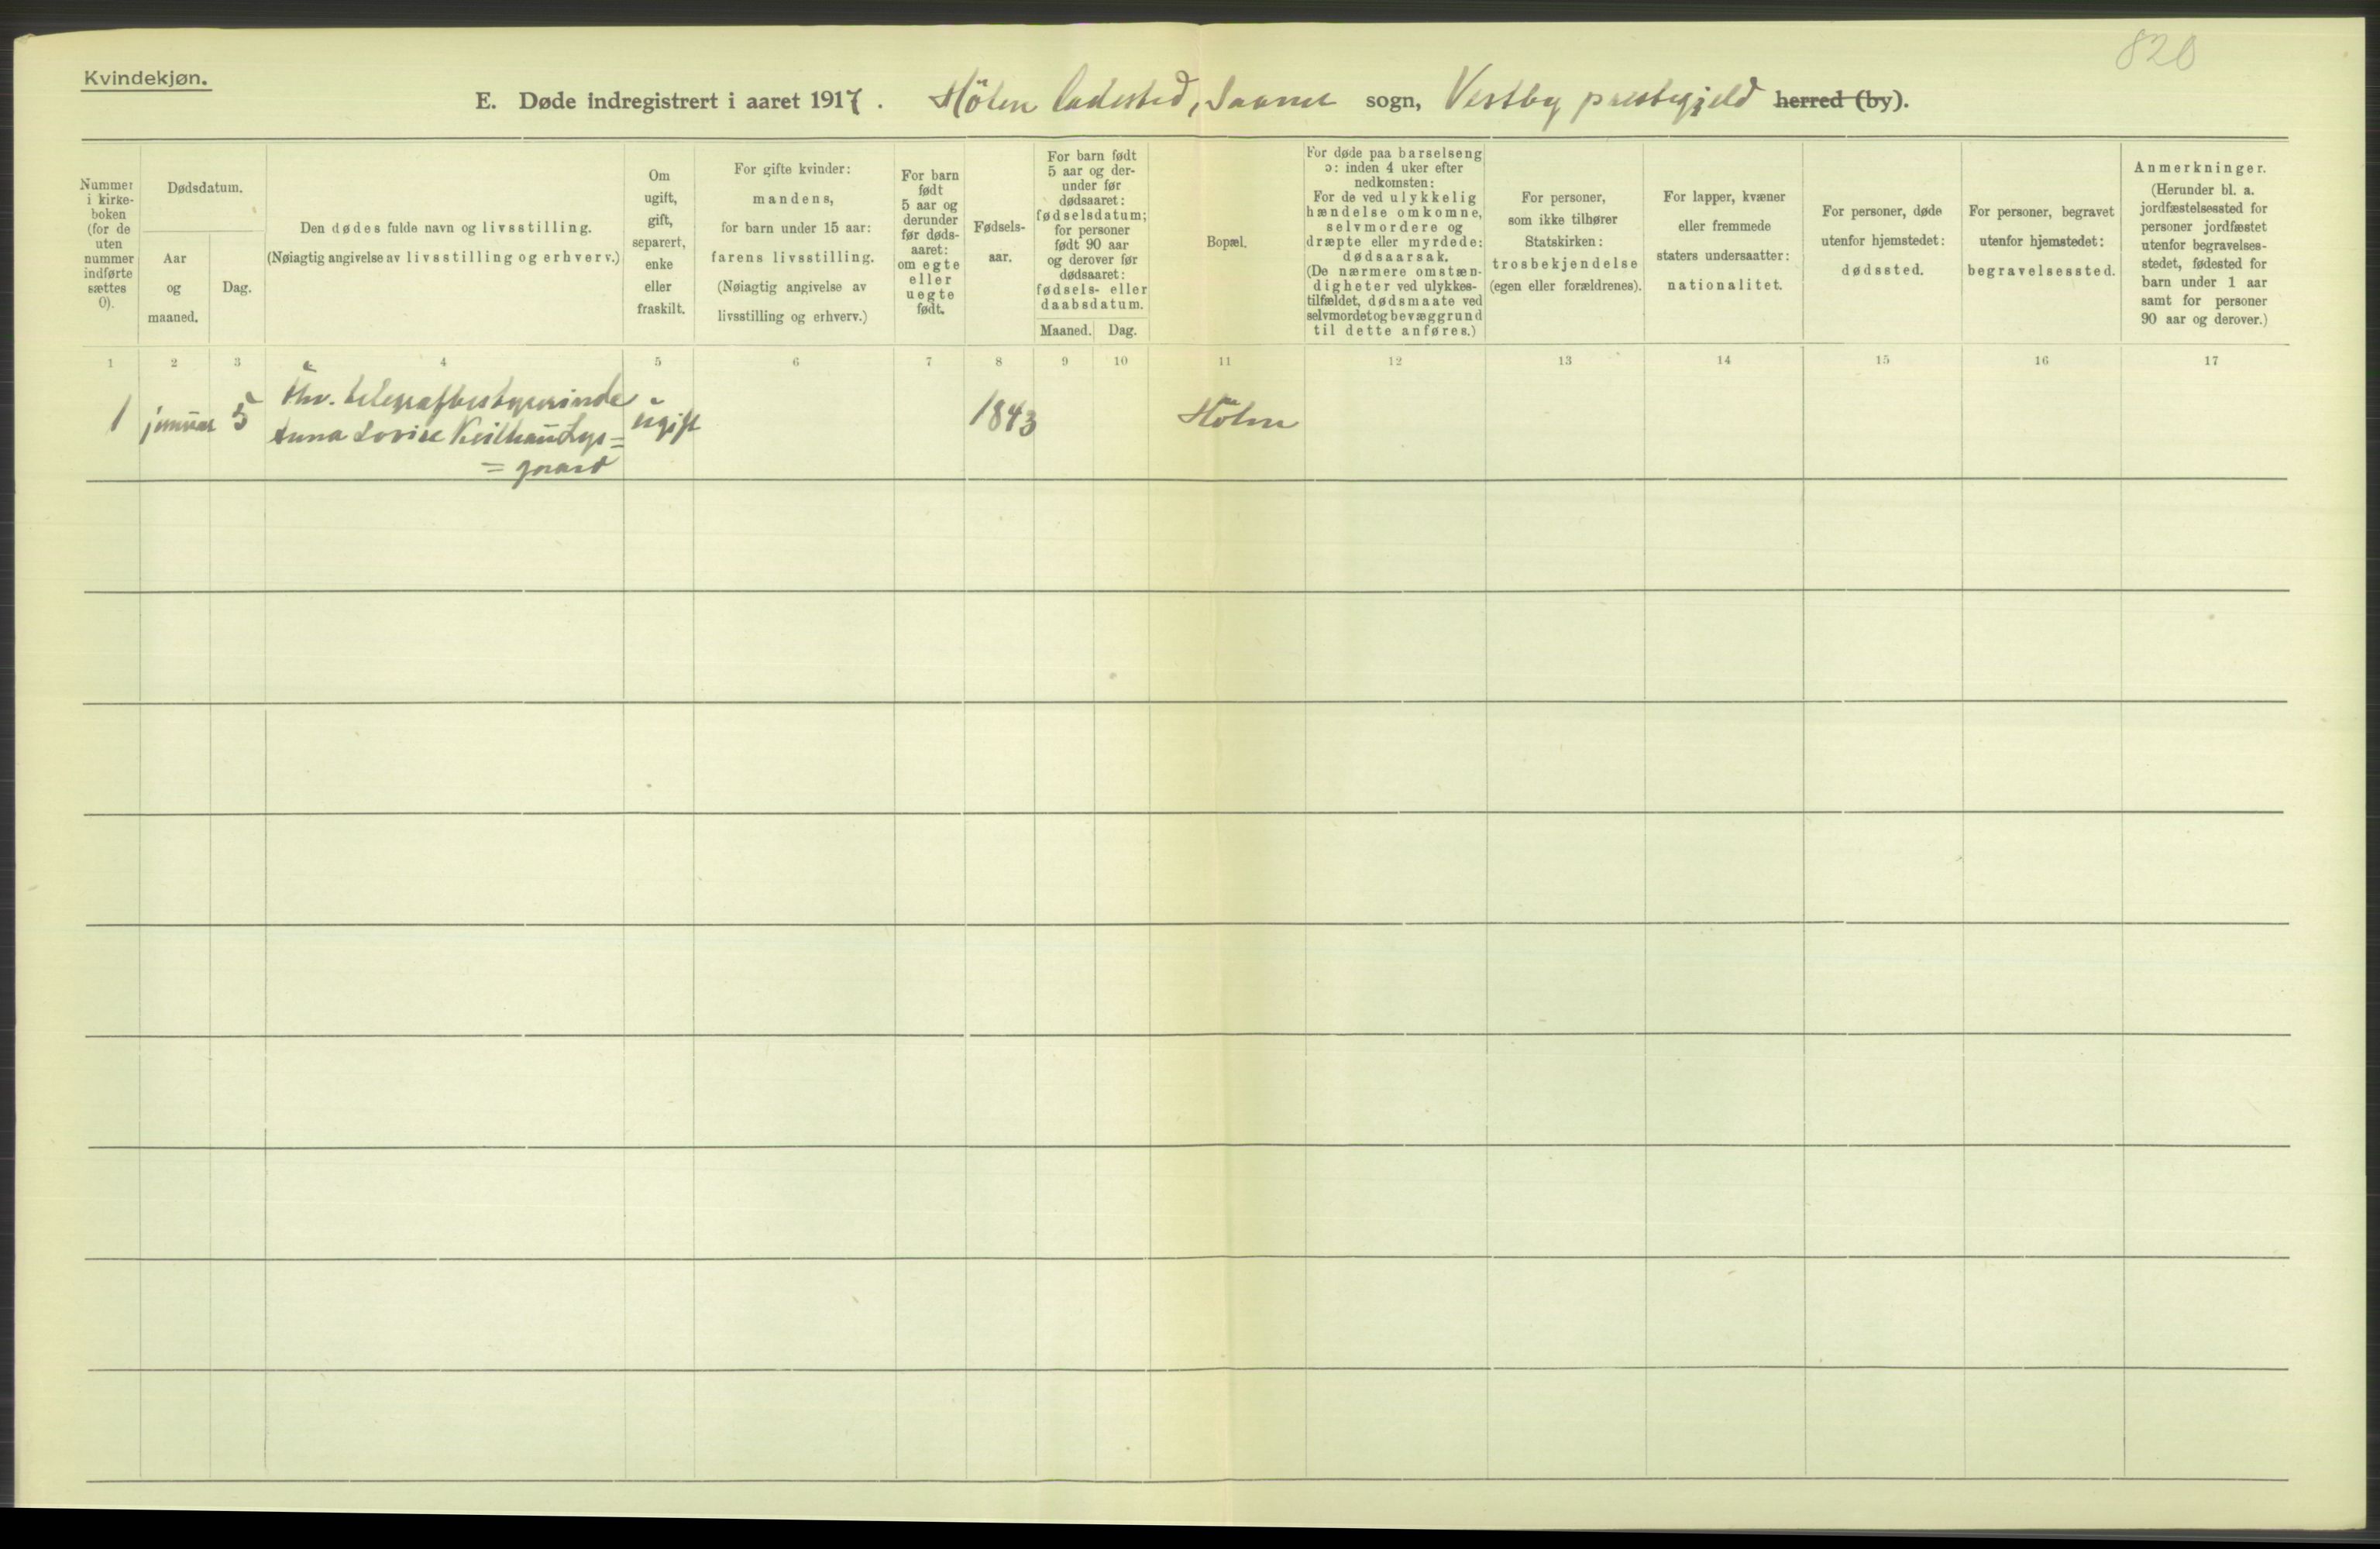 820
Kvindekjøn.
E. Døde indregistrert i aaret 1917. Hölen ladested, Saaner sogn, Vestby prestegjeld herred (by).
Nummer i kirkeboken (for de uten nummer indførte sættes 0).
Dødsdatum.
Aar og maaned.
Dag.
Den dødes fulde navn og livsstilling.
(Nøiagtig angivelse av livsstilling og erhverv.)
Om ugift, gift, separert, enke eller fraskilt.
For gifte kvinder:
mandens,
for barn under 15 aar:
farens livsstilling.
(Nøiagtig angivelse av
livsstilling og erhverv.)
For barn
født
5 aar og
derunder
før døds-
aaret:
om egte
eller
uegte
født.
Fødsels-
aar.
For barn født
5 aar og der-
under før
dødsaaret:
fødselsdatum;
for personer
født 90 aar
og derover før
dødsaaret:
fødsels- eller
daabsdatum.
Maaned. Dag.
Bopæl.
For døde paa barselseng
ɔ: inden 4 uker efter
nedkomsten:
For de ved ulykkelig
hændelse omkomne,
selvmordere og
dræpte eller myrdede:
dødsaarsak.
(De nærmere omstæn-
digheter ved ulykkes-
tilfældet, dødsmaate ved
selvmordet og bevæggrund
til dette anføres.)
For personer,
som ikke tilhører
Statskirken:
trosbekjendelse
(egen eller forældrenes).
For lapper, kvæner
eller fremmede
staters undersaatter:
nationalitet.
For personer, døde
utenfor hjemstedet:
dødssted.
For personer, begravet
utenfor hjemstedet:
begravelsessted.
Anmerkninger.
(Herunder bl. a.
jordfæstelsessted for
personer jordfæstet
utenfor begravelses-
stedet, fødested for
barn under 1 aar
samt for personer
90 aar og derover.)
1 2 3 4 5 6 7 8 9 10 11 12 13 14 15 16 17
telegrafbestyrerinde
1 januar 5 Anna Lovise Keilhau Lys= ugift 1843 Hölen
=gaard